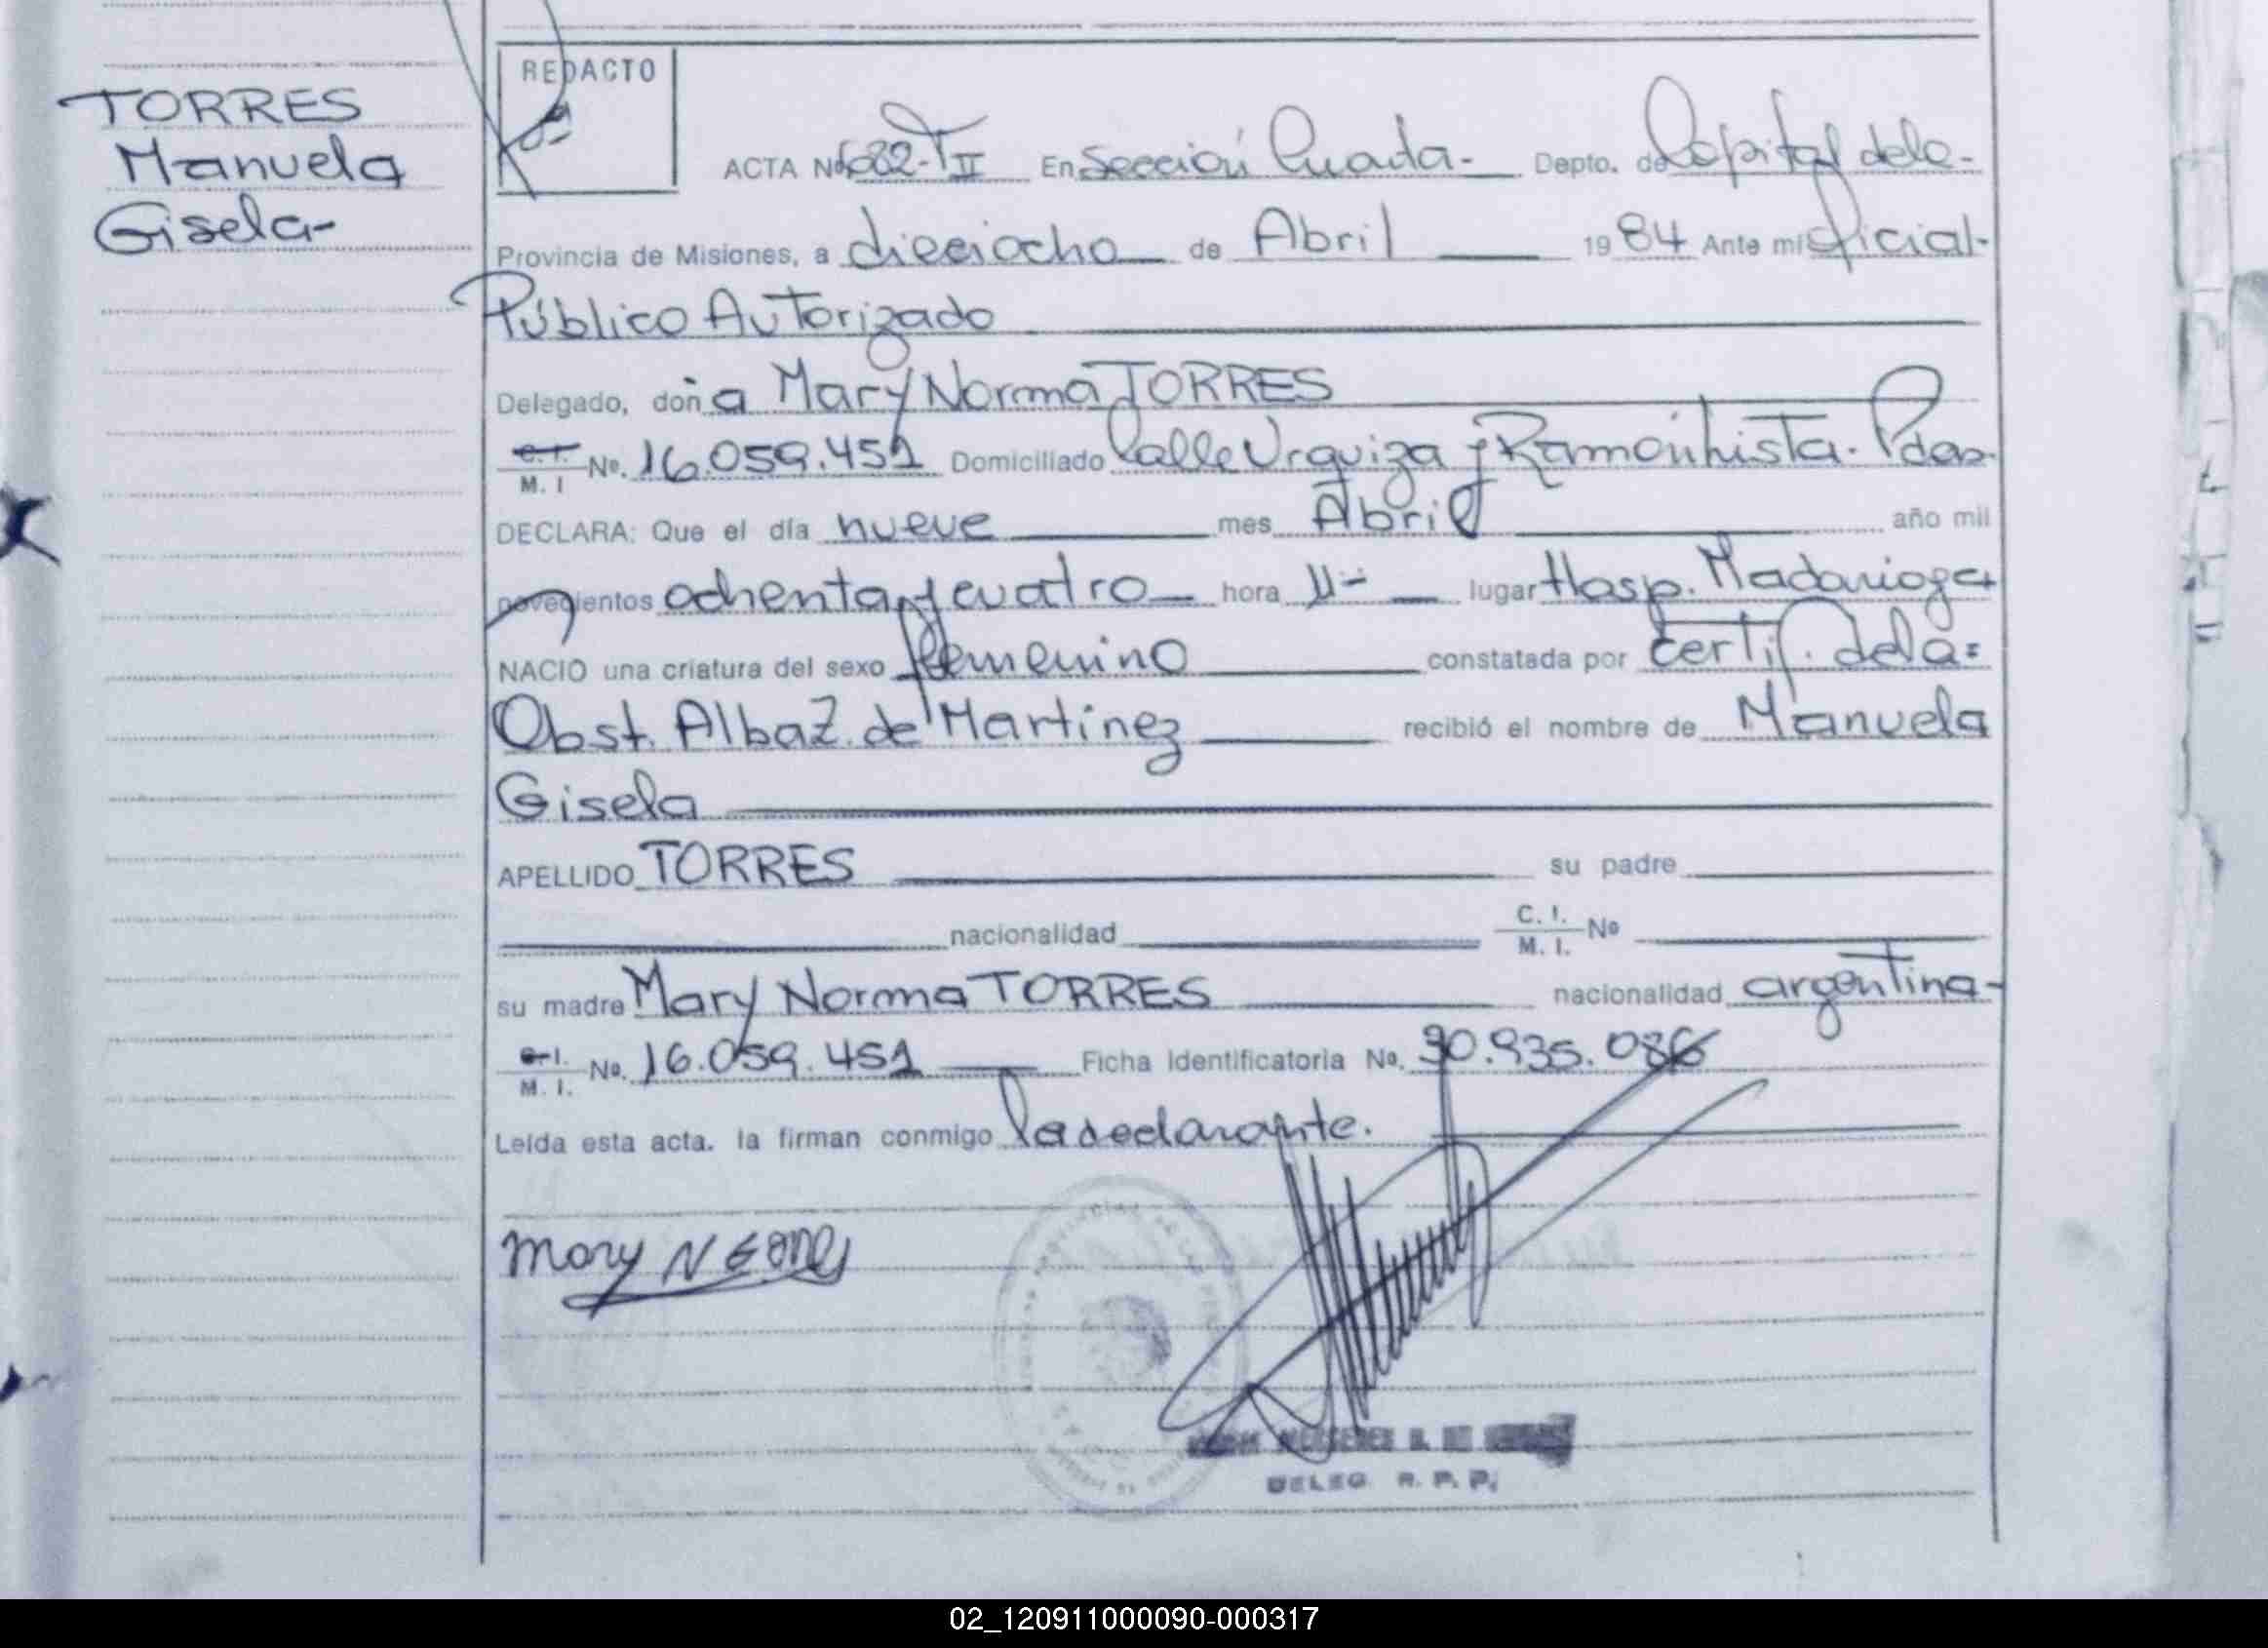 TORRES
Manuela
Gisela-
REDACTO
ACTA Nº 632-T II En Sección Cuarta- Depto. de Capital de la-
Provincia de Misiones, a dieciocho de Abril 1984 Ante mi Oficial-
Público Autorizado
Delegado, doña Mary Norma TORRES
C. I.
M. I Nº. 16.059.451 Domiciliado Calle Urquiza y Ramón Lista. Pdas.
DECLARA: Que el día nueve mes Abril año mil
novecientos ochenta y cuatro hora 11- lugar Hosp. Madariaga
NACIO una criatura del sexo femenino constatada por certif. de la=
Obst. Alba Z. de Martinez recibió el nombre de Manuela
Gisela
APELLIDO TORRES su padre
nacionalidad C. I.
M. I. Nº
su madre Mary Norma TORRES nacionalidad argentina-
C. I.
M. I. Nº. 16.059.451 Ficha Identificatoria No. 30.935.086
Leída esta acta. la firman conmigo la declarante.
Mary N
DELEG. R. P. P.
02_120911000090-000317